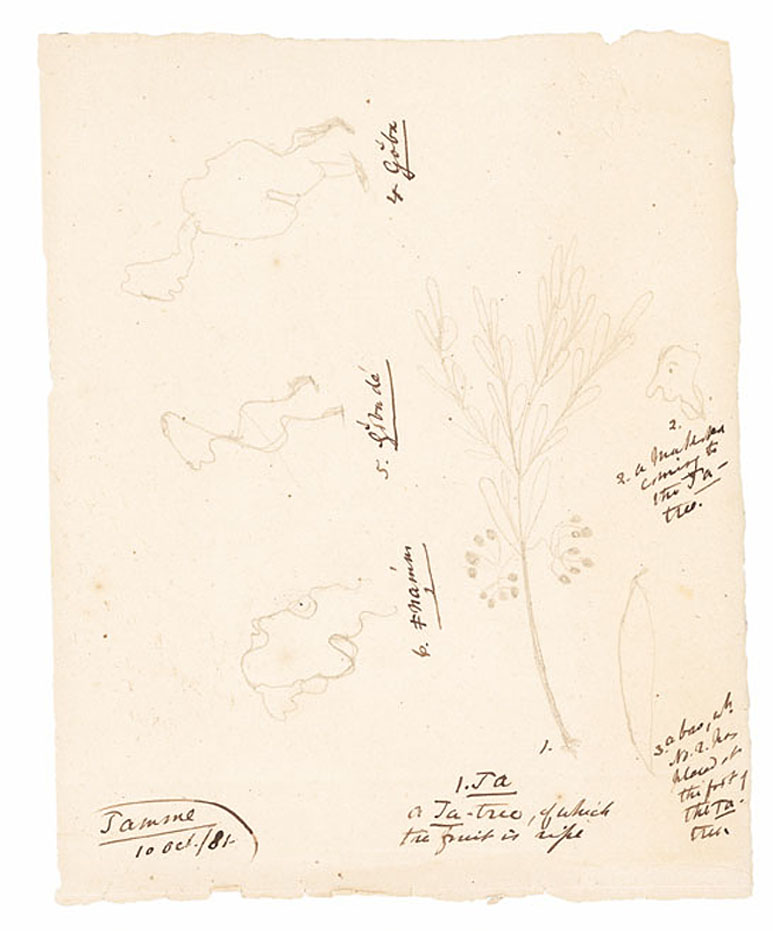 4 Gǒba
5. Gǒba dé
6. ‡namm
2.
2. a Makakoa
coming to
the Ta-
tree.
1.
3. a bow, wh.
No. 2. has
placed at
the foot of
the Ta-
tree.
1. Ta
a Ta-tree, of which
the fruit is ripe
Tamme
10 Oct./81.